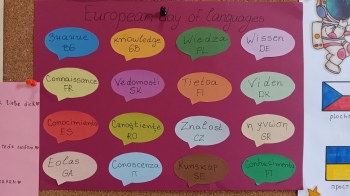 European day of languages
Знание
BG
knowledge
GB
Wiedza
PL
Wissen
DE
Connaissance
FR
Vedomosti
SK
Tietoa
FI
Viden
DK
Conocimiento
ES
Cunoștiențe
RO
Znalost
CZ
η γνώση
GR
Eolas
GA
Conoscenza
IT
Kunskap
SE
Conhecimento
PT